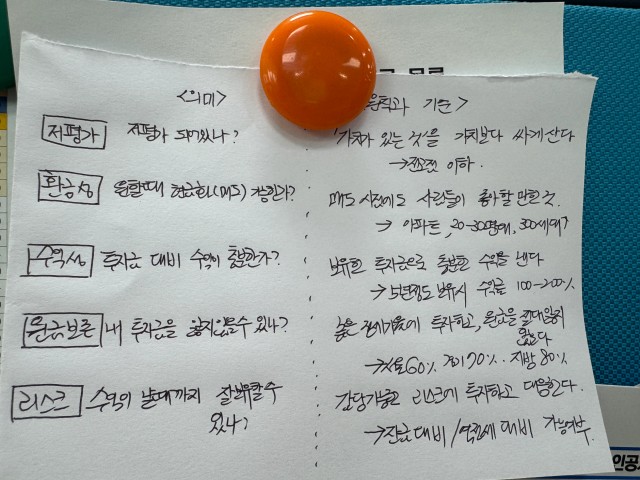 <의미>
원칙과 기준>
저평가 저평가 되어있나?
"가치가 있는 것"을 가치보다 싸게 산다
→ 전고점 이하.
환금성 원할때 현금화(매도) 가능한가?
매도 시점에도 사람들이 좋아할 만한 것.
→ 아파트, 20-30평대, 300세대↑
수익성 투자금 대비 수익이 충분한가?
보유한 투자금으로 충분한 수익을 낸다
→ 5년정도 보유시 수익률 100-200%
원금보존 내 투자금을 잃지않을수 있나?
높은 전세가율에 투자하고, 원금을 절대잃지
않는다
→ 서울60% 경기70%. 지방 80%
리스크 수익이 날때까지 잘보유할수
있나?
감당가능한 리스크에 투자하고 대응한다.
→ 잔금대비/역전세 대비 가능여부.
인공